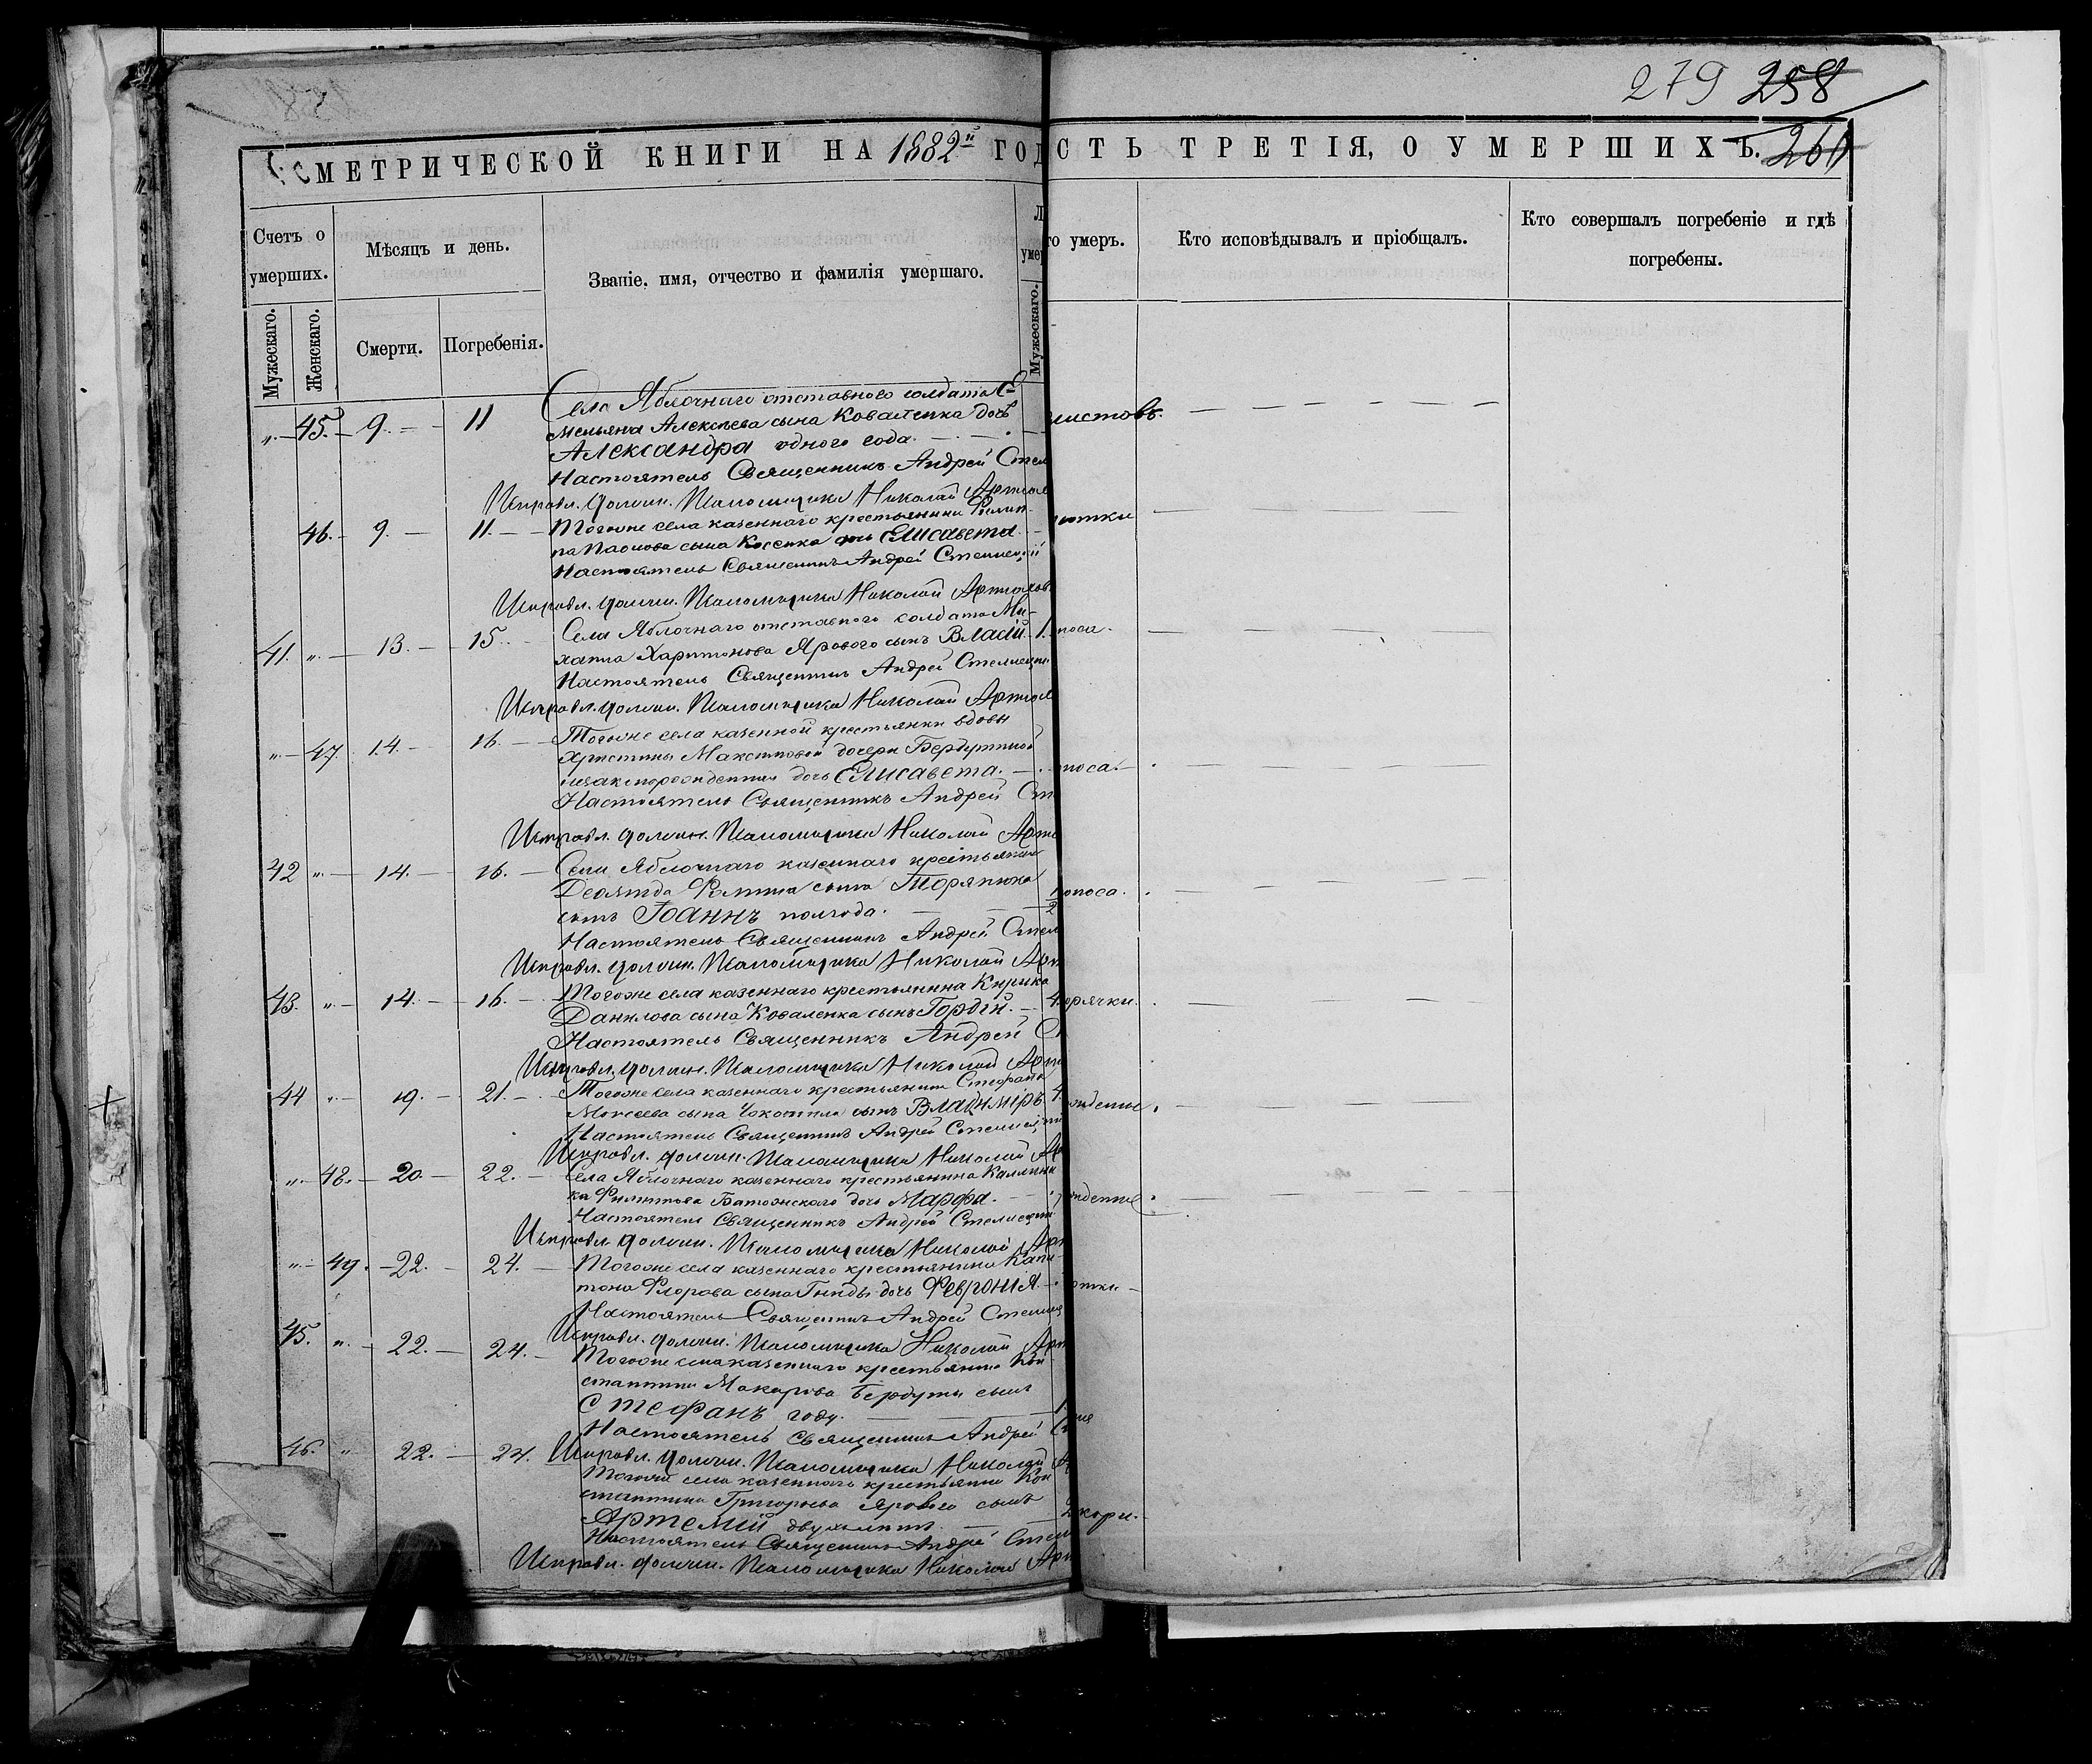 279 258
МЕТРИЧЕСКОЙ КНИГИ НА 1882й ГОД
СТЬ ТРЕТІЯ, О УМЕРШИХЪ. 260
Счетъ о умершихъ.
Мѣсяцъ и день.
Званіе, имя, отчество и фамилія умершаго.
Л
умер
го умеръ.
Кто исповѣдывалъ и пріобщалъ.
Кто совершалъ погребеніе и гдѣ погребены.
Мужескаго.
Женскаго.
Смерти.
Погребенія.
Мужескаго.
„ 45. 9. 11 Села Яблочнаго отставного солдата Е-
мельяна Алексѣева сына Коваленка дочь листовъ.
Александра одного года.
Настоятель Священникъ Андрей Стел
Исправл. должн. Псаломщика Николай Артюх
46. 9. 11. Тогоже села казеннаго крестьянина Филип-
па Павлова сына Косенка дочь Елисавета
Настоятель Священникъ Андрей Стеллецкій
Исправл. должн. Псаломщика Николай Артюхов
41. „ 13. 15. Села Яблочнаго отставного солдата Ми-
хаила Харитонова Ярового сынъ Власій. 1. носа.
Настоятель Священникъ Андрей Стеллецкі
Исправл. должн. Псаломщика Николай Артюх
„ 47. 14. 16. Тогоже села казенной крестьянки вдовы
Христины Максимовой дочери Бердутиной
незаконорожденная дочь Елисавета. носа.
Настоятель Священникъ Андрей Ст
Исправл. должн. Псаломщика Николай Артю
42 „ 14. 16. Села Яблочнаго казеннаго крестьянина
Филиппа сына
сынъ Іоаннъ полгода. 1/2 оноса.
Настоятель Священникъ Андрей Стел
Исправл. должн. Псаломщика Николай Арт
43. „ 14. 16. Тогоже села казеннаго крестьянина Кирика
Данилова сына Коваленка сынъ Гордій. 4. орячки.
Настоятель Священникъ Андрей С
Исправл. должн. Псаломщика Николай Артю
44 „ 19. 21. Тогоже села казеннаго крестьянина Стефана
Моисеева сына сынъ Владиміръ. 4. ожденье.
Настоятель Священникъ Андрей Стеллецкі
Исправл. должн. Псаломщика Николай Ар
„ 48. 20. 22. Села Яблочнаго казеннаго крестьянина Каллини-
ка Филиппова дочь Марфа. жденіе.
Настоятель Священникъ Андрей Стеллецкі
Исправл. должн. Псаломщика Николай Арт
„ 49. 22. 24. Тогоже села казеннаго крестьянина Капи-
тона Флорова сына Гниды дочь Февронія.
Настоятель Священникъ Андрей Стеллец
Исправл. должн. Псаломщика Николай Арт
45. „ 22. 24. Тогоже села казеннаго крестьянина Кон-
стантина Макарова Бердуты сынъ
Стефанъ году. 1.
Настоятель Священникъ Андрей Ст
Исправл. должн. Псаломщика Николай А
46. „ 22. 24. Тогоже села казеннаго крестьянина Кон-
стантина Григорьева Ярового сынъ
Артемій двухъ лѣтъ. 2. кори.
Настоятель Священникъ Андрей Стел
Исправл. должн. Псаломщика Николай Арт